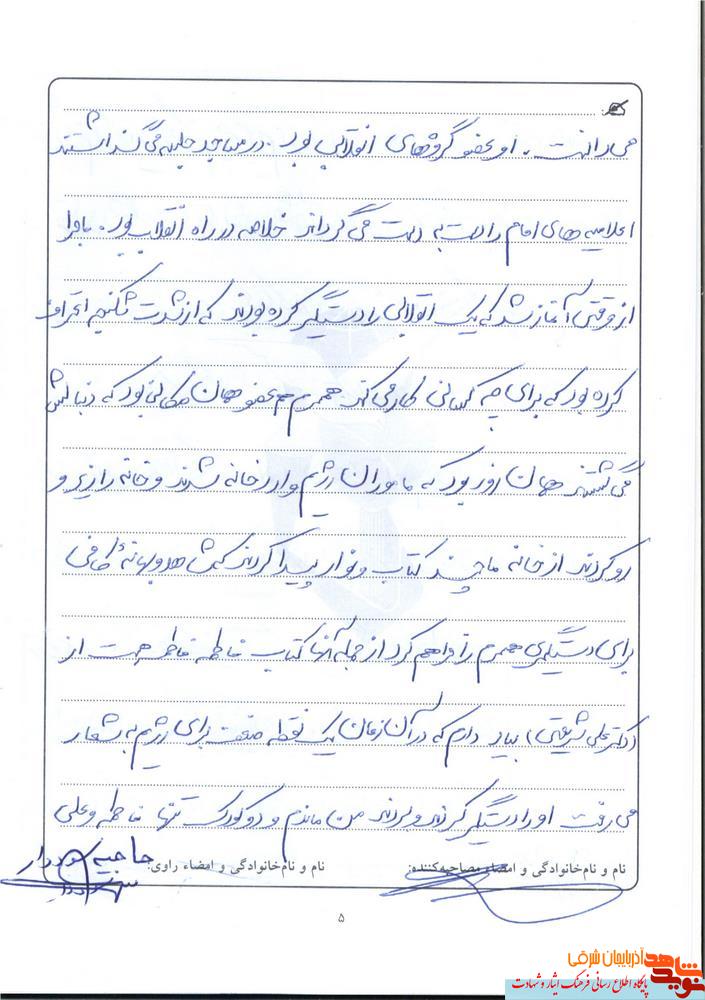 می دانست . او عضو گروههای انقلابی بود . در مساجد جلسه می گذاشتند
اعلامیه های امام را دست به دست می گرداند خلاصه در راه انقلاب بود .
از وقتی آغاز شد که یک انقلابی را دستگیر کرده بودند که از شدت شکنجه اعتراف
کرده بود که برای چه کسانی کار می کند همسرم هم عضو همان بود که دنبالش
می گشتند همان روز بود که ماموران رژیم وارد خانه شدند و خانه را زیر و
رو کردند از خانه ما چند کتاب و نوار پیدا کردند
برای دستگیری همسرم را فراهم کرد از جمله آنها کتاب فاطمه فاطمه است از
(دکتر علی شریعتی) بیاد دارم که در آن زمان یک نقطه ضعف برای رژیم به شمار
می رفت او را دستگیر کردند و بردند من ماندم و دو کودک تنها فاطمه و علی
نام و نام‌خانوادگی و امضاء مصاحبه‌کننده:
نام و نام‌خانوادگی و امضاء راوی:
۵
نوید شاهد آذربایجان شرقی
پایگاه اطلاع رسانی فرهنگ ایثار و شهادت